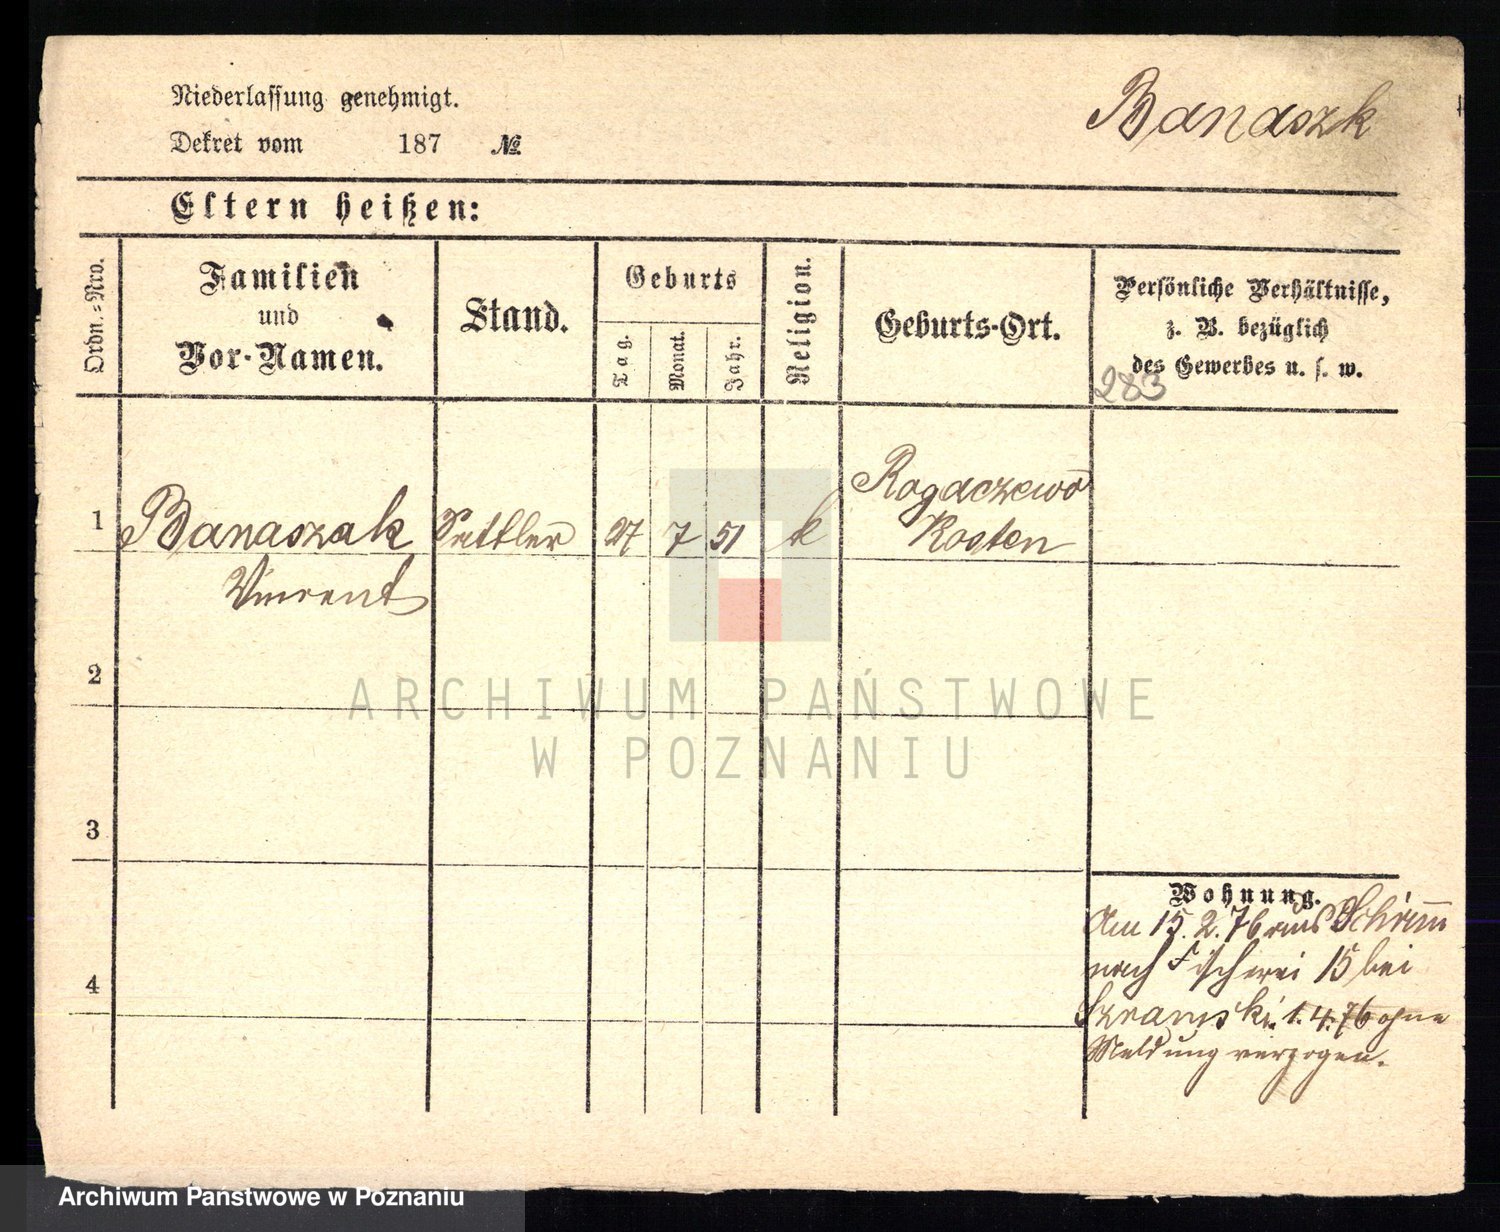 Niederlassung genehmigt.
Dekret vom 187 №
Banaszk
Eltern heißen:
Ordn.-Nro.
Familien
und
Vor-Namen.
Stand.
Geburts
Tag.
Monat.
Jahr.
Religion.
Geburts-Ort.
Persönliche Verhältnisse,
z. B. bezüglich
des Gewerbes u. s. w.
283
1 Banaszak Sattler 27 7 51 k Rogaczewo
Vincent Kosten
2
ARCHIWUM PAŃSTWOWE
W POZNANIU
3
4
Wohnung.
Am 15. 2. 76 aus Schrimm
nach Fischerei 15 bei
Szramski. 1. 4. 76 ohne
Meldung verzogen.
Archiwum Państwowe w Poznaniu